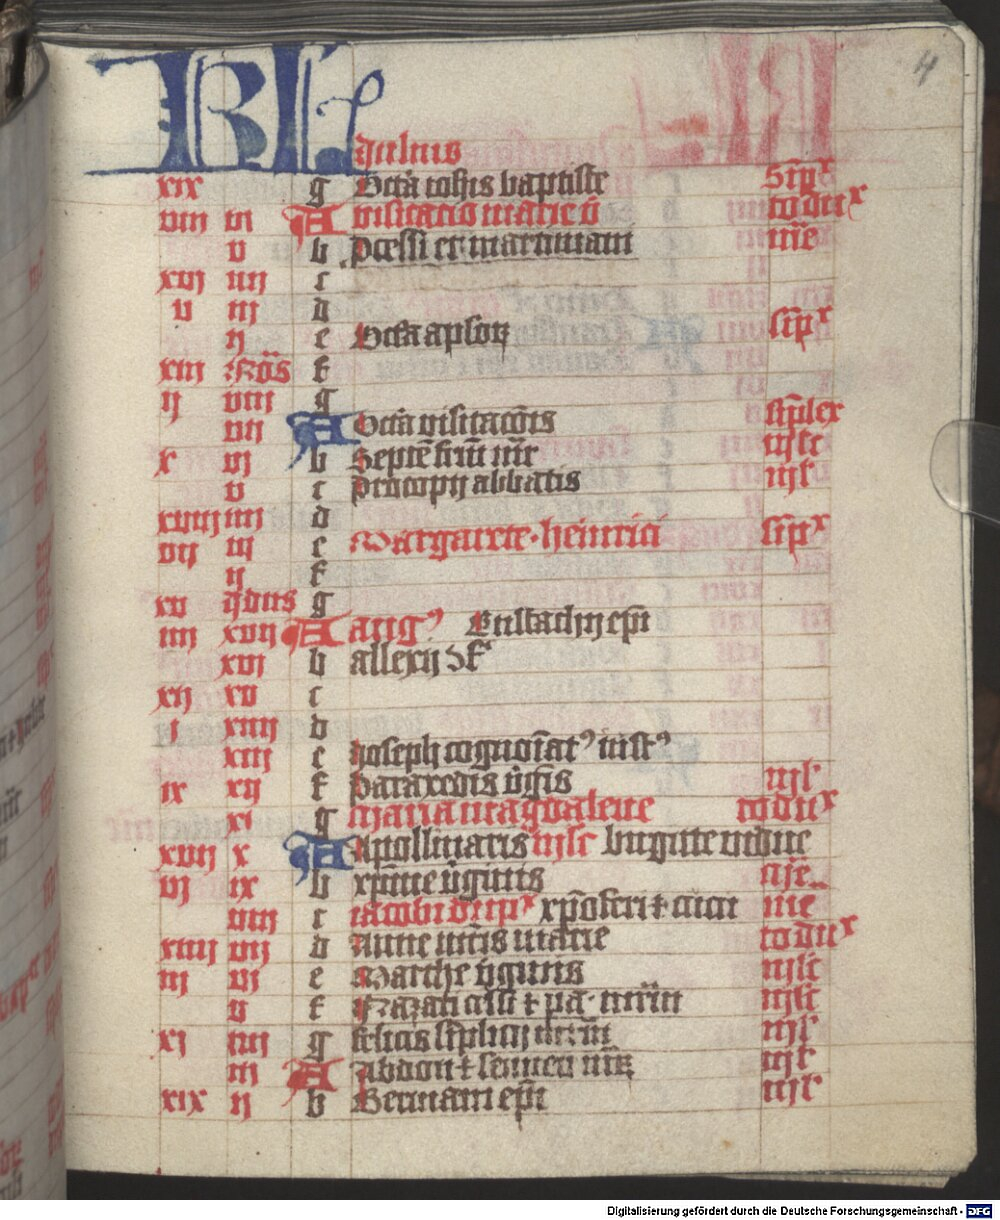 4
KL Julius
xix g Octa iohis baptiste simpx
viii vi A visitatio marie v to dux
v b Pcessi et martiniani me
xvi iiii c
v iii d
ij e Octa aplorum simpx
xiii Nōs f
ij viii g
vii A Octa visitacōis simplex
x vi b Septē frm mr iijlc
v c Procopij abbatis iijl
xviii iiii d
vii iii e Margarete · heinrici simpx
ij f
xv ydus g
iiii xvii A aug9 Eustachij epi
xvi b allexij 9f
xii xv c
i xiiii d
xiii e Joseph cognoīat9 iust9
ix xij f Paraxedis v̄gis iijl
xi g Maria magdalene to dux
xvii x A Apollinaris iijlc brigitte vidue
vi ix b xp̄ine v̄ginis me
viii c iacobi dupx xp̄oferi et cucu me
xiiii vii d Anne mr̄is marie to dux
iii vi e Marthe v̄ginis iijlc
v f Nazarii celsi et pā· mr̄im iijlc
xi iiii g felicis simplicij mr̄im iijl
iii A Abdon et sennen mr iijl
xix ij b Germani epi iijl
Digitalisierung gefördert durch die Deutsche Forschungsgemeinschaft - DFG